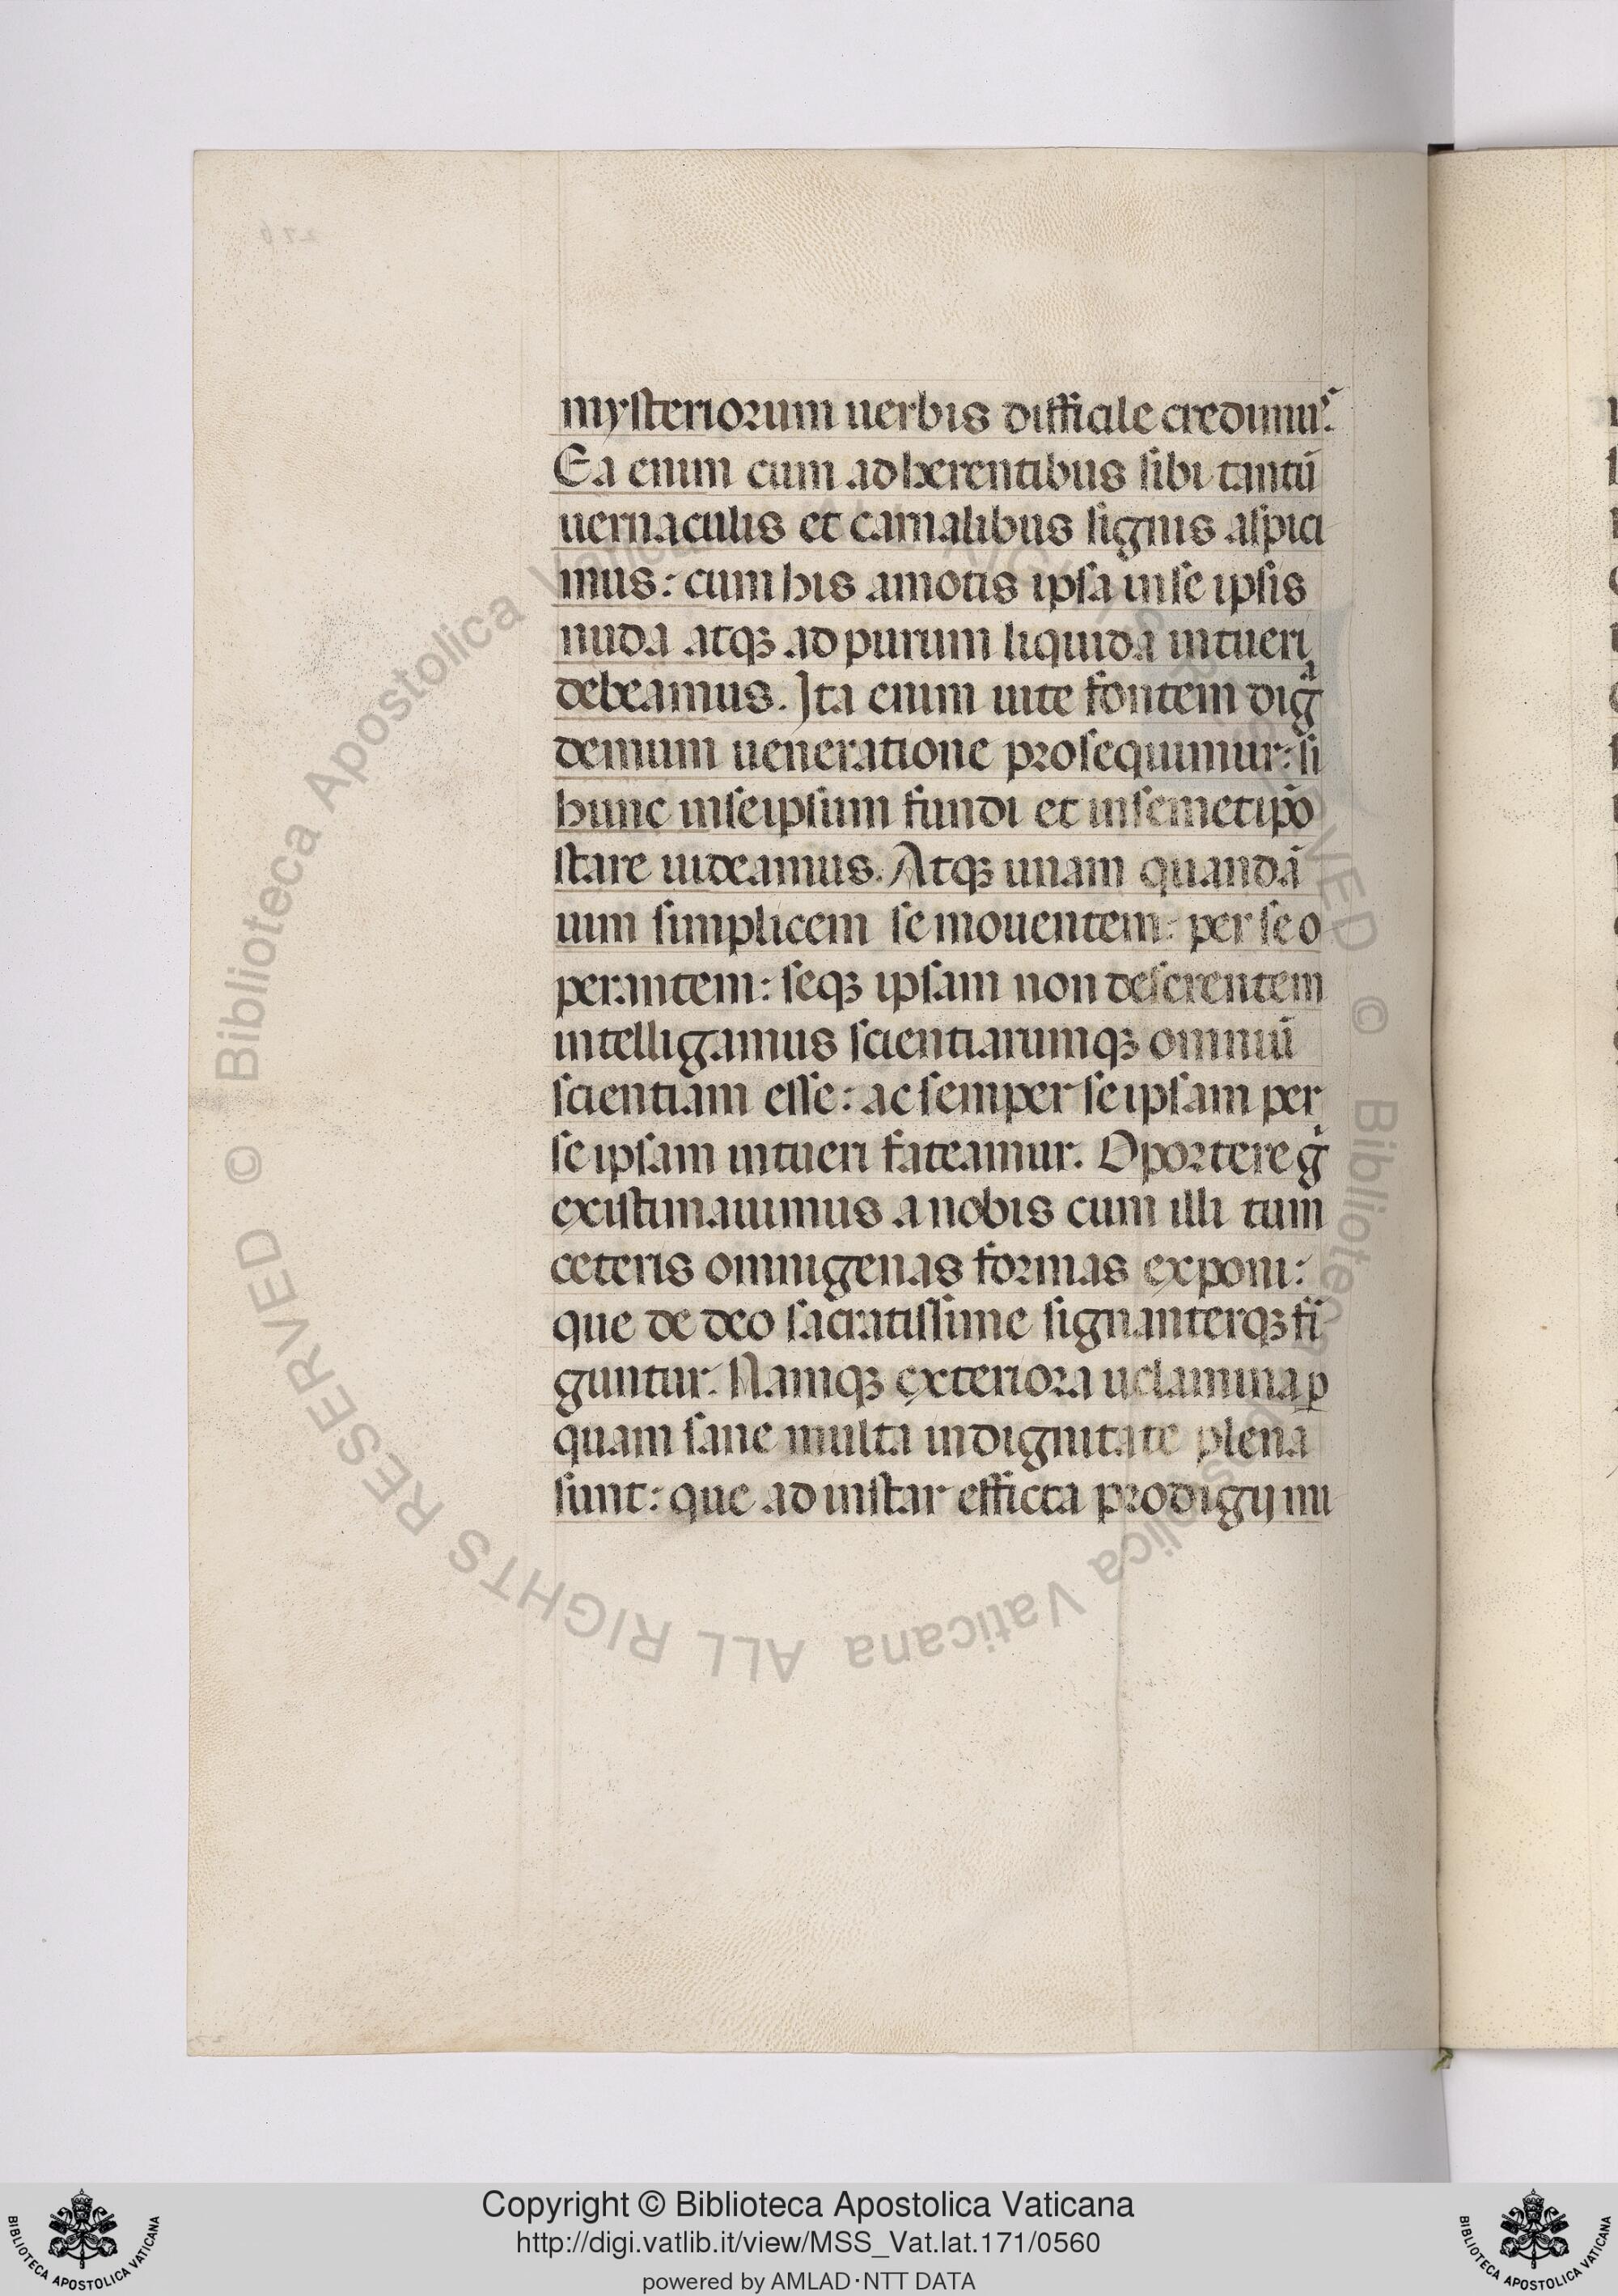 mysteriorum uerbis difficile credimuˢ.
Ea enim cum adherentibus sibi tantū
uernaculis et carnalibus signis aspici
mus: cum his amotis ipsa in se ipsis
nuda atqꝫ ad purum liquida intueri
debeamus. Ita enim uite fontem digͣ
demum ueneratione prosequimur: si
hunc inseipsum fundi et insemetip̄o
stare uideamus. Atqꝫ unam quandā
uim simplicem se mouentem: per se o
perantem: seqꝫ ipsam non deserentem
intelligamus scientiarumqꝫ omniū
scientiam esse: ac semper seipsam per
se ipsam intueri fateamur. Oportere gͥ
existimauimus a nobis cum illi tum
ceteris omnigenas formas exponi:
que de deo sacratissime signanterqꝫ fī
guntur. Namqꝫ exteriora uelamina ꝑ
quam sane multa indignitate plena
sunt: que ad instar efficta prodigij nu
© Biblioteca Apostolica Vaticana ALL RIGHTS RESERVED
Copyright © Biblioteca Apostolica Vaticana
http://digi.vatlib.it/view/MSS_Vat.lat.171/0560
powered by AMLAD·NTT DATA
BIBLIOTECA APOSTOLICA VATICANA
BIBLIOTECA APOSTOLICA VATICANA